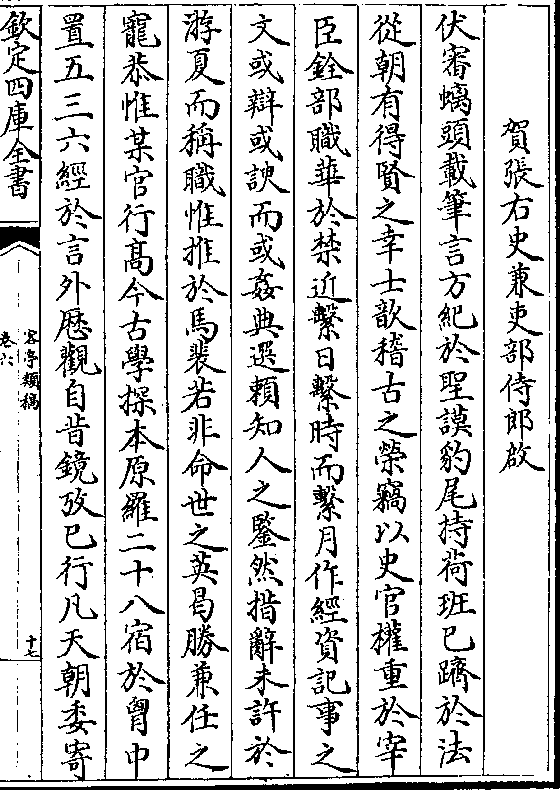 賀張右史兼吏部侍郎啟
伏審螭頭載筆言方紀於聖謨豹尾持荷班已躋於法
從朝有得賢之幸士歆稽古之榮竊以史官權重於宰
臣銓部職華於禁近繫日繫時而繫月作經資記事之
文或辯或諛而或姦典選賴知人之鑒然措辭未許於
游夏而稱職惟推於馬裴若非命世之英曷勝兼任之
寵恭惟某官行髙今古學探本原羅二十八宿於胷中
置五三六經於言外歴觀自昔鏡攷已行凡天朝委寄
欽定四庫全書
客亭類稿
卷六
十七